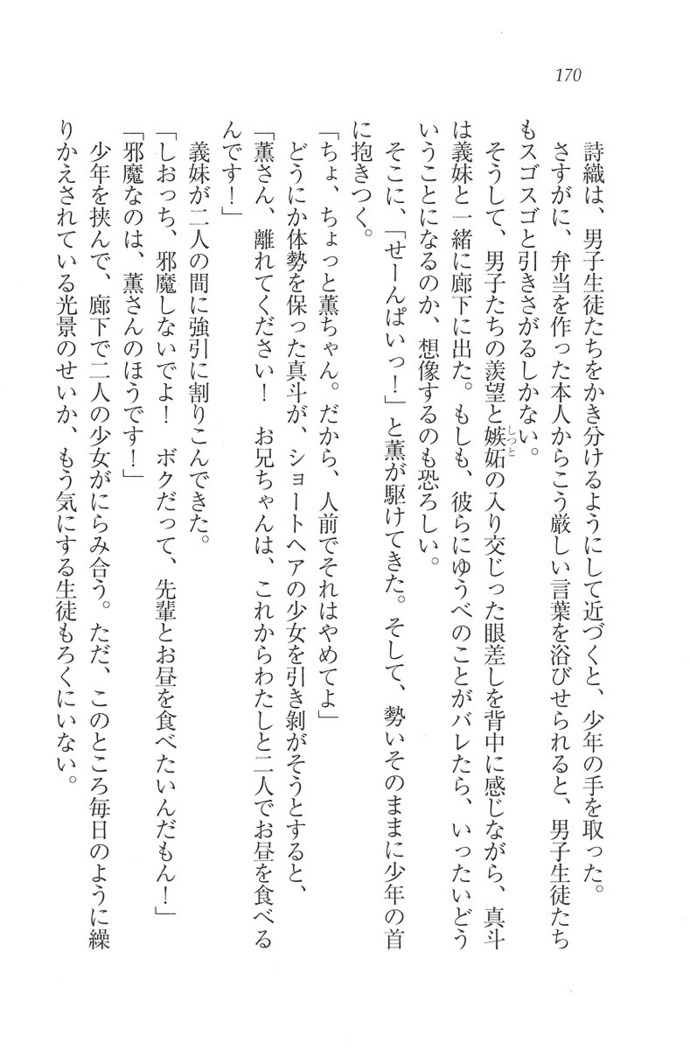 170
詩織は、男子生徒たちをかき分けるようにして近づくと、少年の手を取った。
さすがに、弁当を作った本人からこう厳しい言葉を浴びせられると、男子生徒たち
もスゴスゴと引きさがるしかない。
そうして、男子たちの羨望と嫉妬しっとの入り交じった眼差しを背中に感じながら、真斗
は義妹と一緒に廊下に出た。もしも、彼らにゆうべのことがバレたら、いったいどう
いうことになるのか、想像するのも恐ろしい。
そこに、「せーんぱいっ！」と薫が駆けてきた。そして、勢いそのままに少年の首
に抱きつく。
「ちょ、ちょっと薫ちゃん。だから、人前でそれはやめてよ」
どうにか体勢を保った真斗が、ショートヘアの少女を引き剝がそうとすると、
「薫さん、離れてください！　お兄ちゃんは、これからわたしと二人でお昼を食べる
んです！」
義妹が二人の間に強引に割りこんできた。
「しおっち、邪魔しないでよ！　ボクだって、先輩とお昼を食べたいんだもん！」
「邪魔なのは、薫さんのほうです！」
少年を挟んで、廊下で二人の少女がにらみ合う。ただ、このところ毎日のように繰
りかえされている光景のせいか、もう気にする生徒もろくにいない。